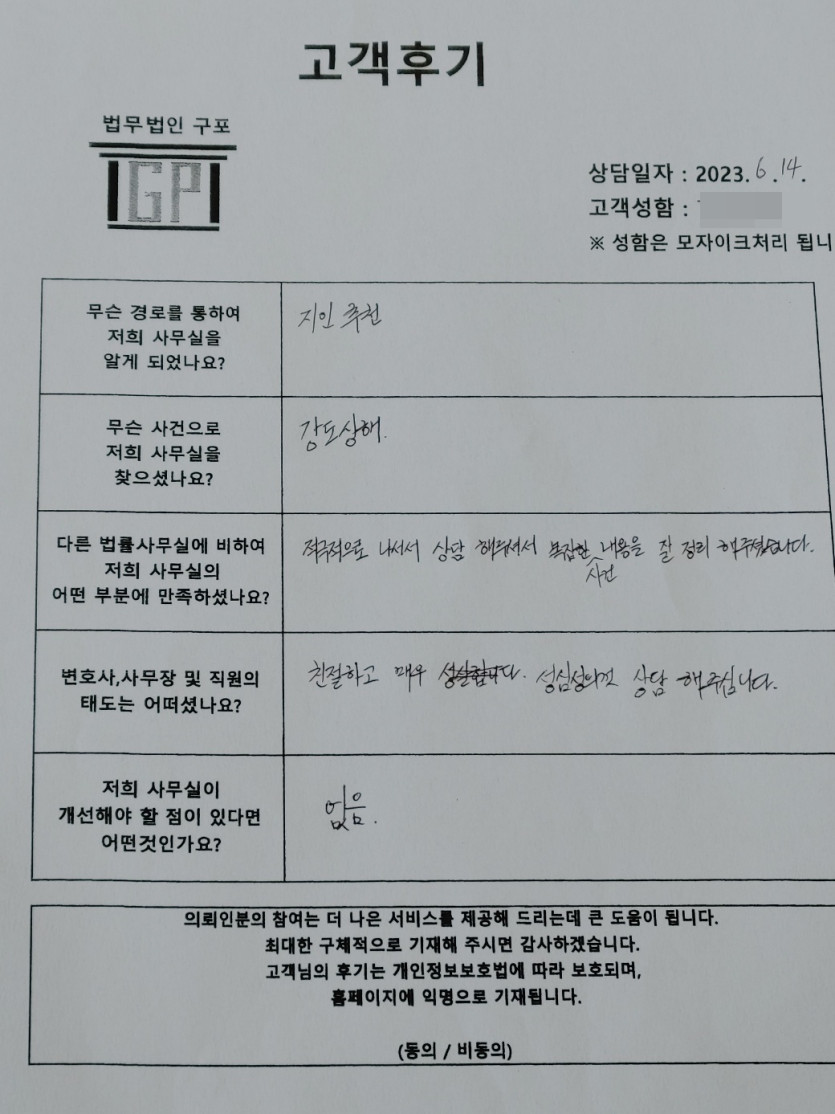 고객후기
법무법인 구포
GP
상담일자 : 2023. 6. 14.
고객성함 :
※ 성함은 모자이크처리 됩니
무슨 경로를 통하여
저희 사무실을
알게 되었나요?
지인 추천
무슨 사건으로
저희 사무실을
찾으셨나요?
강도상해.
다른 법률사무실에 비하여
저희 사무실의
어떤 부분에 만족하셨나요?
적극적으로 나서서 상담 해주셔서 복잡한 사건 내용을 잘 정리 해주셨습니다.
변호사,사무장 및 직원의
태도는 어떠셨나요?
친절하고 매우 성실합니다. 성심성의껏 상담 해주십니다.
저희 사무실이
개선해야 할 점이 있다면
어떤것인가요?
없음.
의뢰인분의 참여는 더 나은 서비스를 제공해 드리는데 큰 도움이 됩니다.
최대한 구체적으로 기재해 주시면 감사하겠습니다.
고객님의 후기는 개인정보보호법에 따라 보호되며,
홈페이지에 익명으로 기재됩니다.
(동의 / 비동의)